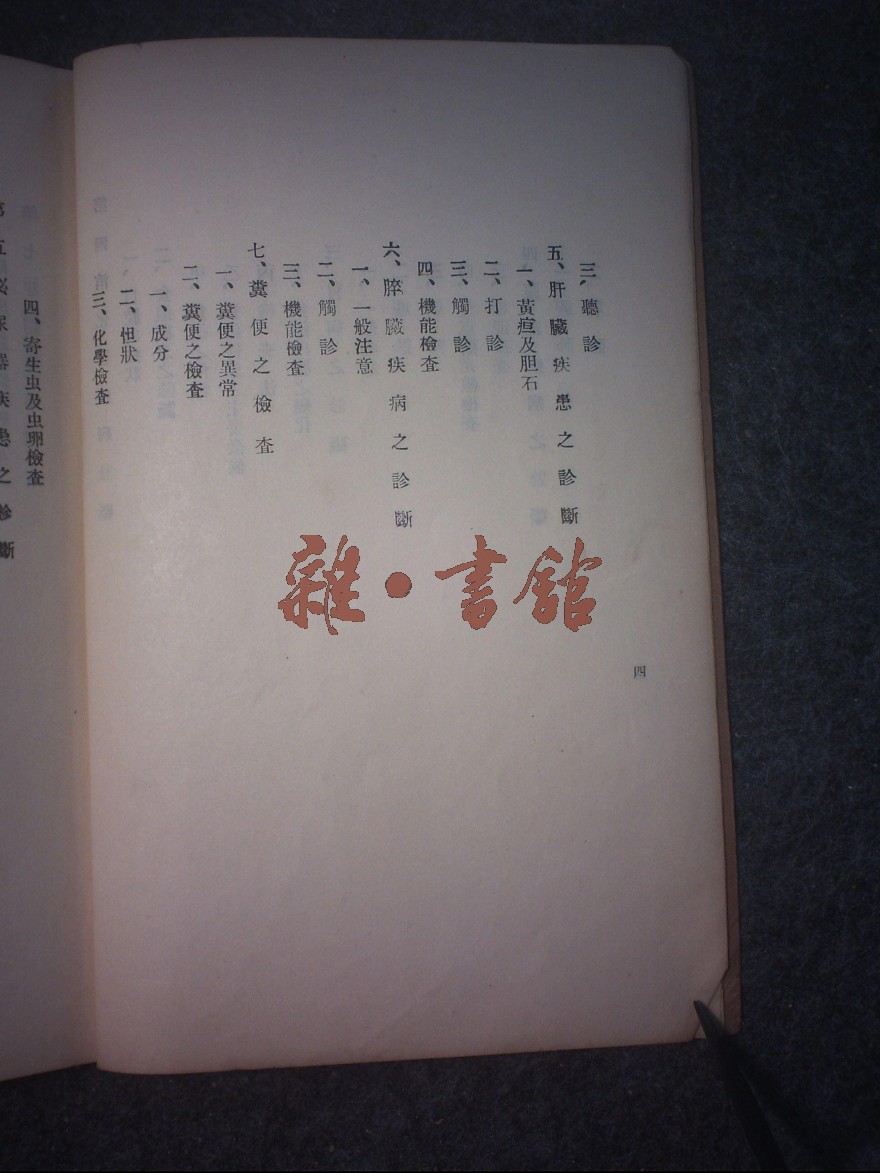 三、聽診
五、肝臟疾患之診斷
一、黃疸及胆石
二、打診
三、觸診
四、機能檢査
六、膵臟疾病之診斷
一、一般注意
二、觸診
三、機能檢査
七、糞便之檢査
一、糞便之異常
二、糞便之檢査
一、成分
二、怛狀
三、化學檢査
四
四、寄生虫及虫卵檢査
器疾患之診斷
雜·書館